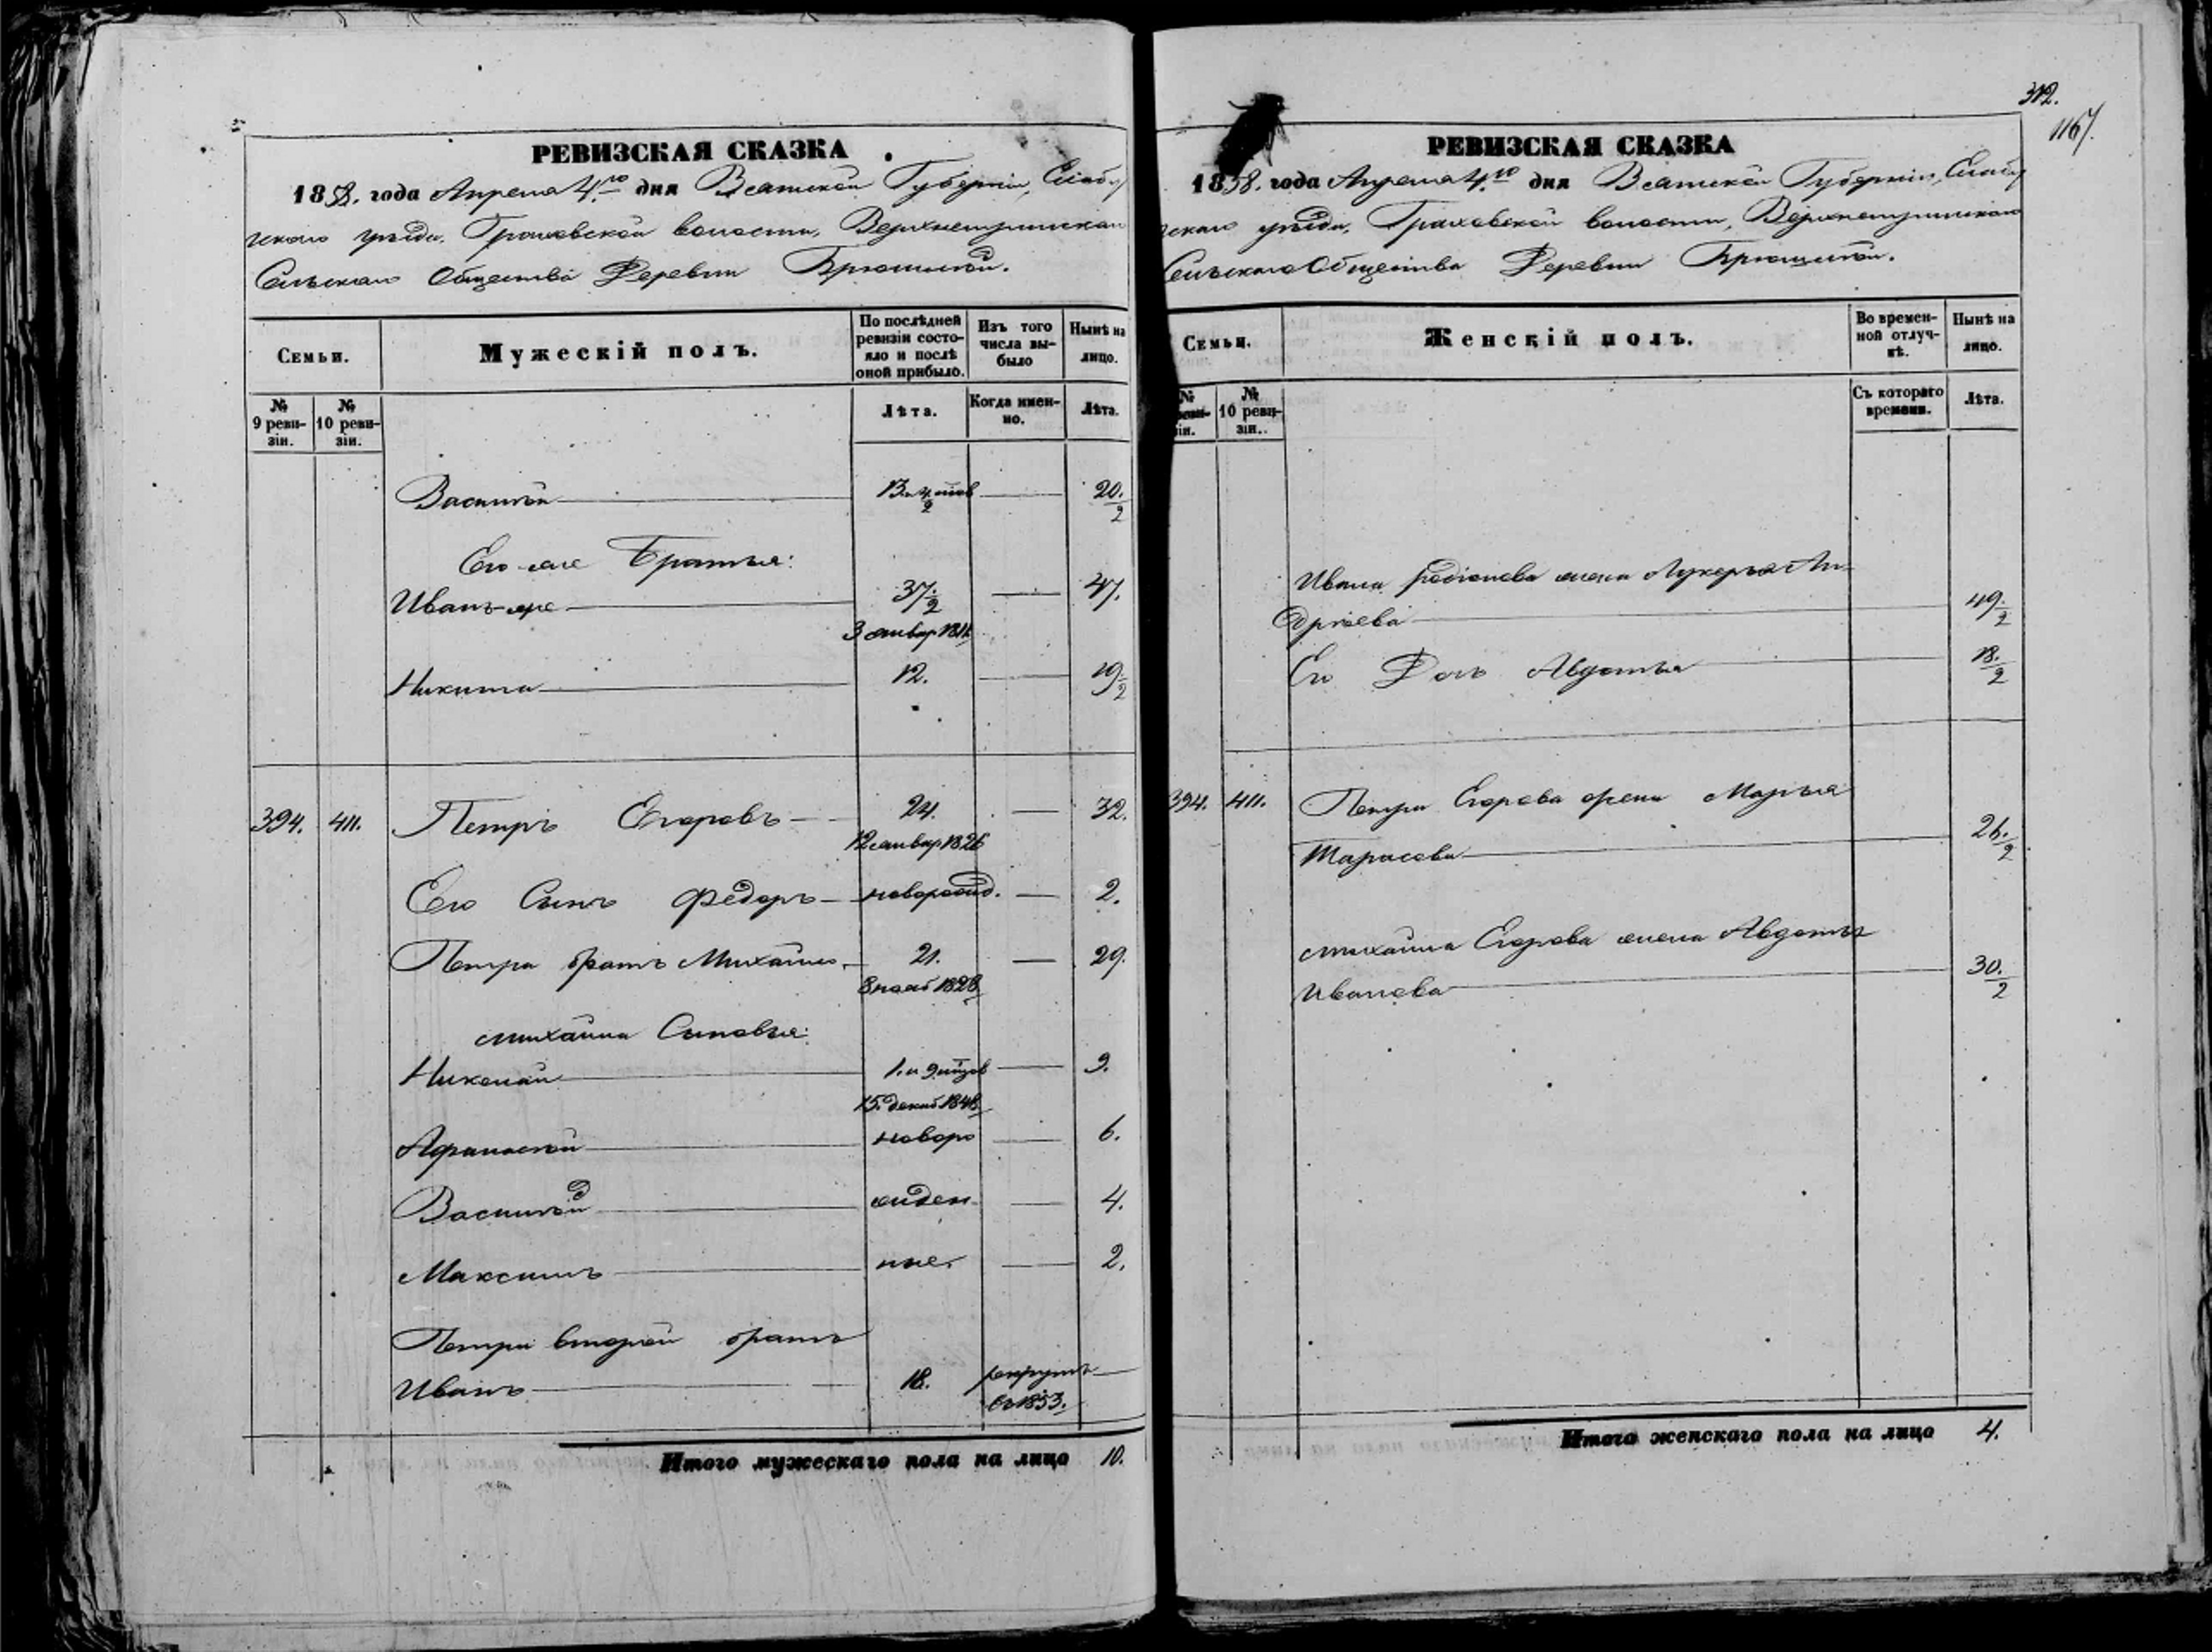 РЕВИЗСКАЯ СКАЗКА
1858. года Апреля 4го дня Вятской Губерніи, Елабу
жскаго уѣзда, Граховской волости,
Сельскаго Общества Деревни
Семьи.
Мужескій полъ.
По послѣдней ревизіи состояло и послѣ оной прибыло.
Изъ того числа выбыло
Нынѣ на лицо.
№ 9 ревизіи.
№ 10 ревизіи.
Лѣта.
Когда именно.
Лѣта.
Василій 20. 1/2
Его же Братья:
Иванъ 37. 1/2 47.
3 январ
Никита 12. 19 1/2
394. 411. Петръ Егоровъ 24. 32.
12 январ 1826
Его Сынъ Федоръ новорожд. 2.
Петра братъ Михайло 21. 29.
8 нояб 1828
Михайла Сыновья:
Николай 1. и 9 мѣцов 9.
15. декаб. 1848
Афанасей новоро 6.
Василей жден 4.
Максимъ ные. 2.
Петра второй братъ
Иванъ 18. рекрутъ
въ 1853.
Итого мужескаго пола на лицо 10.
312.
1167.
РЕВИЗСКАЯ СКАЗКА
1858. года Апреля 4го дня Вятской Губерніи, Елабу
жскаго уѣзда, Граховской волости,
Сельскаго Общества Деревни
Семьи.
Женскій полъ.
Во временной отлучкѣ.
Нынѣ на лицо.
№ 10 ревизіи.
Съ котораго времени.
Лѣта.
Ивана Родіонова жена Лукерья Ан-
дрѣева 49. 1/2
Его Дочь Авдотья 18. 1/2
394. 411. Петра Егорова жена Марья
Тарасова 26. 1/2
Михайла Егорова жена Авдотья
Иванова 30. 1/2
Итого женскаго пола на лицо 4.